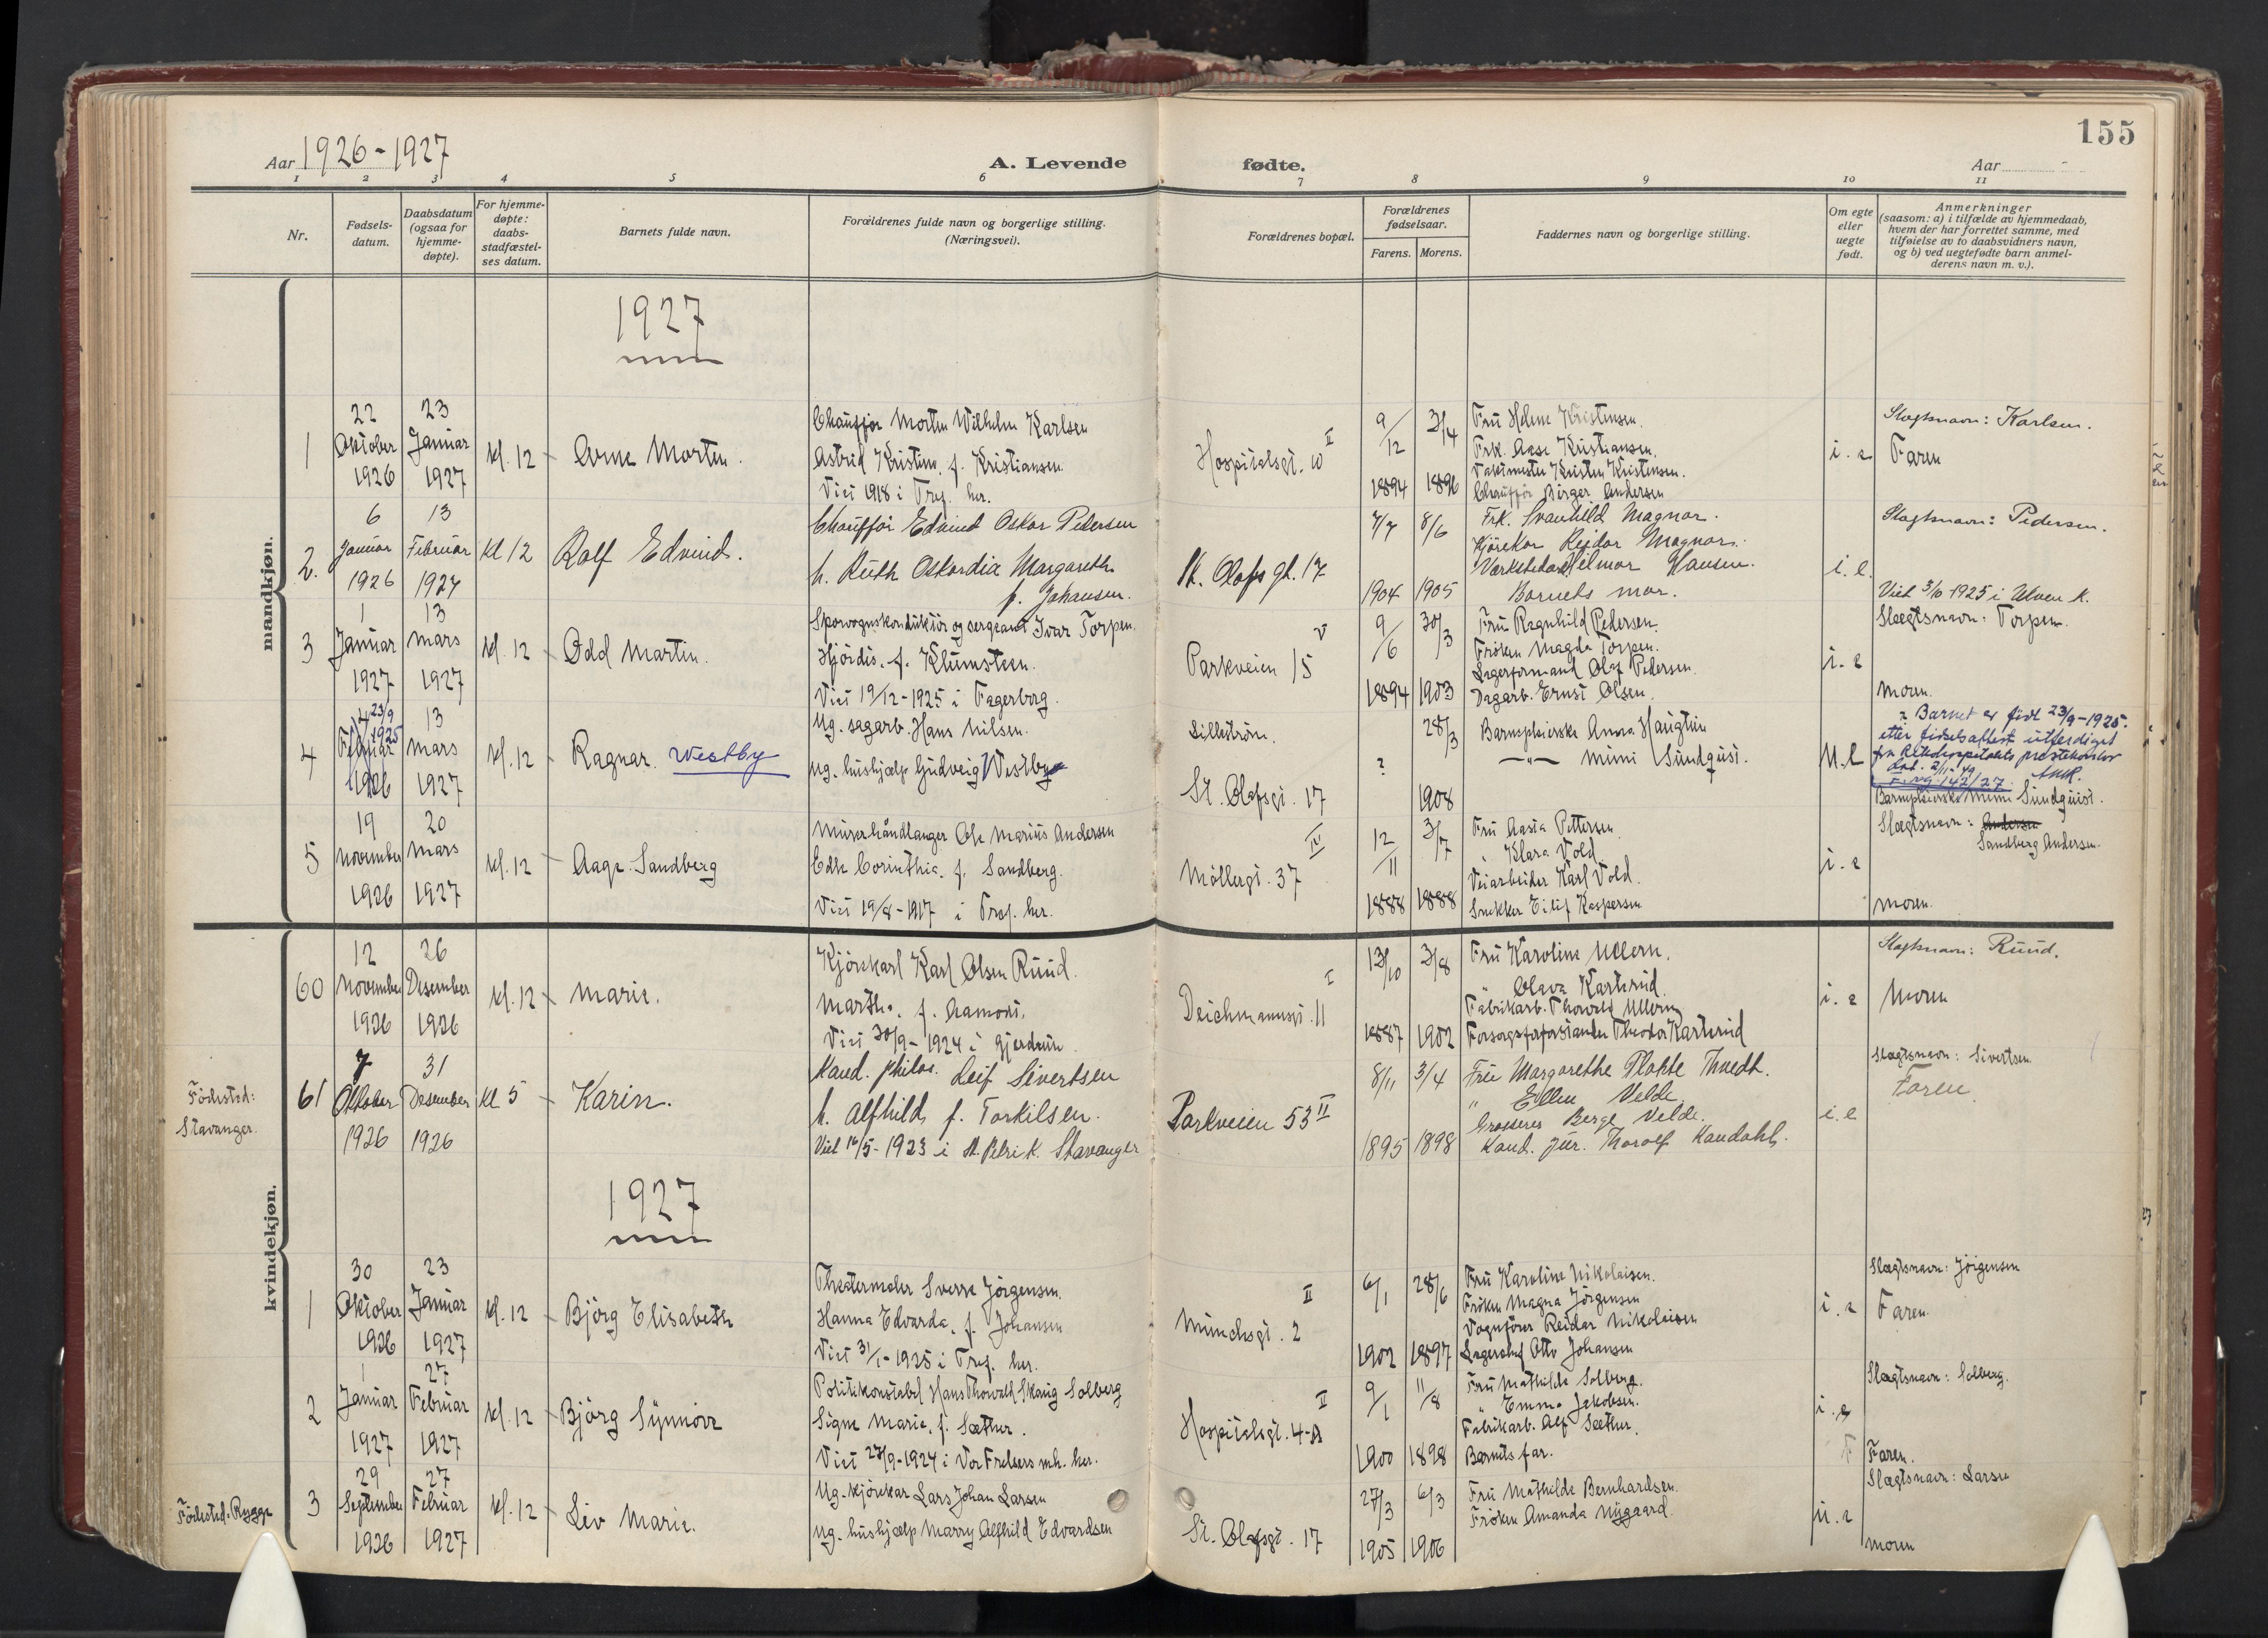 155
Aar 1926-1927
A. Levende fødte.
Aar
1 2 3 4 5 6 7 8 9 10 11
Nr.
Fødsels-
datum.
Daabsdatum
(ogsaa for
hjemme-
døpte).
For hjemme-
døpte:
daabs-
stadfæstel-
ses datum.
Barnets fulde navn.
Forældrenes fulde navn og borgerlige stilling.
(Næringsvei).
Forældrenes bopæl.
Forældrenes
fødselsaar.
Farens. Morens.
Faddernes navn og borgerlige stilling.
Om egte
eller
uegte
født.
Anmerkninger
(saasom: a) i tilfælde av hjemmedaab,
hvem der har forrettet samme, med
tilføielse av to daabsvidners navn,
og b) ved uegtefødte barn anmel-
derens navn m. v.).
mandkjøn.
1927
1
22
Oktober
1926
23
Januar
1927
kl. 12
Arne Morten.
Chauffør Morten Wilhelm Karlsen
Astrid Kristine, f. Kristiansen.
Viet 1918 i Tref. her.
Hospitalsgt. 10 II
9/12
1894
3/4
1896
Fru Helene Kristensen.
Frk. Aase Kristiansen.
Vaktmester Kristen Kristensen.
Chauffør Birger Andersen
i. e
Slegtsnavn: Karlsen.
Faren
2.
6
Januar
1926
13
Februar
1927
kl 12
Rolf Edvind.
Chauffør Edvind Oskar Pedersen
h. Ruth Oskordia Margareth.
f. Johansen.
St. Olafs gt. 17
7/7
1904
8/6
1905
Frk. Svanhild Magnor.
Kjørekar Reidar Magnor.
Verkstedarb. Hilmar Hansen.
Barnets mor.
i. e.
Slegtsnavn: Pedersen.
Viet 3/10 1925 i Ulven K.
3
1
Januar
1927
13
mars
1927
kl. 12
Odd Martin.
Sporvognskonduktør og sergeant Ivar Torpen.
Hjørdis, f. Klumsteen.
Viet 19/12-1925 i Fagerborg.
Parkveien 15 V
9/6
1894
30/3
1903
Fru Ragnhild Pedersen.
Frøken Magda Torpen.
Lagerformand Olaf Pedersen.
Dagarb. Ernst Olsen.
i. e
Slegtsnavn: Torpen.
moren.
4
4 23/9
Februar 1925
1926
13
mars
1927
kl. 12
Ragnar. Westby
Ug. sagarb. Hans Nilsen.
ug. hushjælp Gudveig Westby
Lillestrøm.
St. Olafsgt. 17
?
28/3
1908
Barnepleierske Anna Haugtun
—"— Mimi Sundquist.
U. e
Barnet er født 23/9-1925.
etter fødselsattest utferdiget
fra Rikshospitalets prestekontor
dat. 2/11-49
142/27.
Barnepleierske Mimi Sundquist.
5
19
November
1926
20
mars
1927
kl. 12
Aage Sandberg
Murerhåndlanger Ole Marius Andersen
Edle Corinthia, f. Sandberg.
Viet 19/8-1917 i Tref. her.
Møllergt. 37 IV
12/11
1888
3/7
1888
Fru Aasta Pettersen.
" Klara Vold
Veiarbeider Karl Vold.
Snekker Eilif Kaspersen
i. e
Slegtsnavn: Andersen
Sandberg Andersen.
moren.
kvindekjøn.
60
12
November
1926
26
Desember
1926
kl. 12
Marie.
Kjørekarl Karl Olsen Ruud.
Martha, f. Aamodt.
Viet 30/9-1924 i Gjerdrum
Deichmannsgt. 11 I
13/10
1887
3/8
1902
Fru Karoline Ullern.
" Olava Karterud.
Fabrikarb. Thorvald Ullern
Forsorgsforstander Theodor Karterud
i. e
Slegtsnavn: Ruud.
Moren
Fødested:
Stavanger.
61
7
Oktober
1926
31
Desember
1926
kl 5
Karin.
Kand. philos. Leif Sivertsen
h. Alfhild f. Torkilsen.
Viet 16/5-1923 i St. Petri K. Stavanger
Parkveien 53 II
8/11
1895
3/4
1898
Fru Margarethe Plahte Thvedt.
" Ellen Velde.
Grosserer Berge Velde.
Kand. jur. Thorolf Kandahl.
i. e
Slegtsnavn: Sivertsen
Faren
1927
1
30
Oktober
1926
23
Januar
1927
kl. 12
Bjørg Elisabeth
Theatermaler Sverre Jørgensen.
Hanna Edvarda, f. Johansen
Viet 31/1-1925 i Tref. her.
Munchsgt. 2 II
6/1
1902
28/6
1897
Fru Karoline Nikolaisen.
Frøken Magna Jørgensen
Vognfører Reidar Nikolaisen
Lagerchef Otto Johansen
i. e
Slegtsnavn: Jørgensen
Faren.
2
1
Januar
1927
27
Februar
1927
kl. 12
Bjørg Synnøve
Politikonstabel Hans Thorvald Skaug Solberg
Signe Marie, f. Sæther.
Viet 27/9-1924 i Vor Frelsers mh. her.
Hospitalsgt. 4-A II
9/1
1900
11/8
1898
Fru Mathilde Solberg.
" Emma Jakobsen.
Fabrikarb. Alf Sæther.
Barnets far.
i. e
Slegtsnavn: Solberg.
Faren.
Fødested: Rygge
3
29
September
1926
27
Februar
1927
kl. 12
Liv Marie.
Ug. kjørekar Lars Johan Larsen
ug. hushjælp Marry Alfhild Edvardsen
St. Olafsgt. 17
27/3
1905
6/3
1906
Fru Mathilde Bernhardsen.
Frøken Amanda Nygaard.
u. e
Slegtsnavn: Larsen
moren